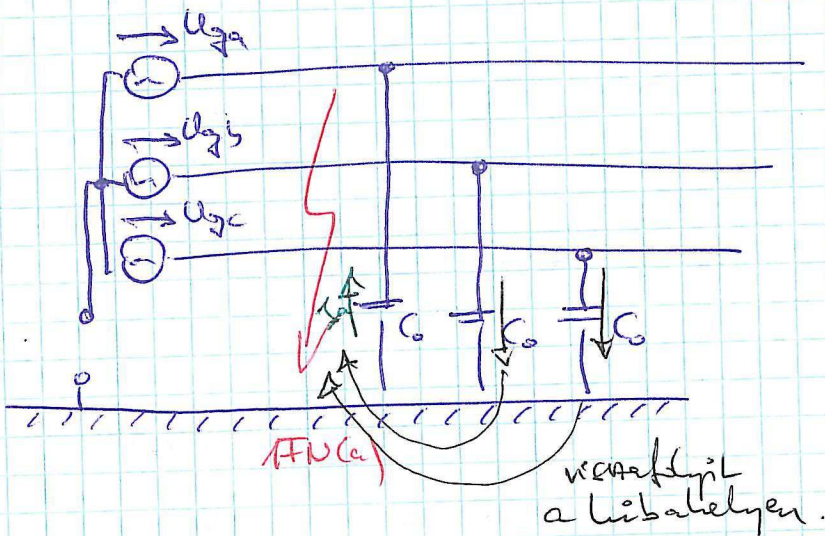 Uga
Ugb
Ugc
C₀
C₀
C₀
1FN(a)
visszafolyik
a hibahelyen.